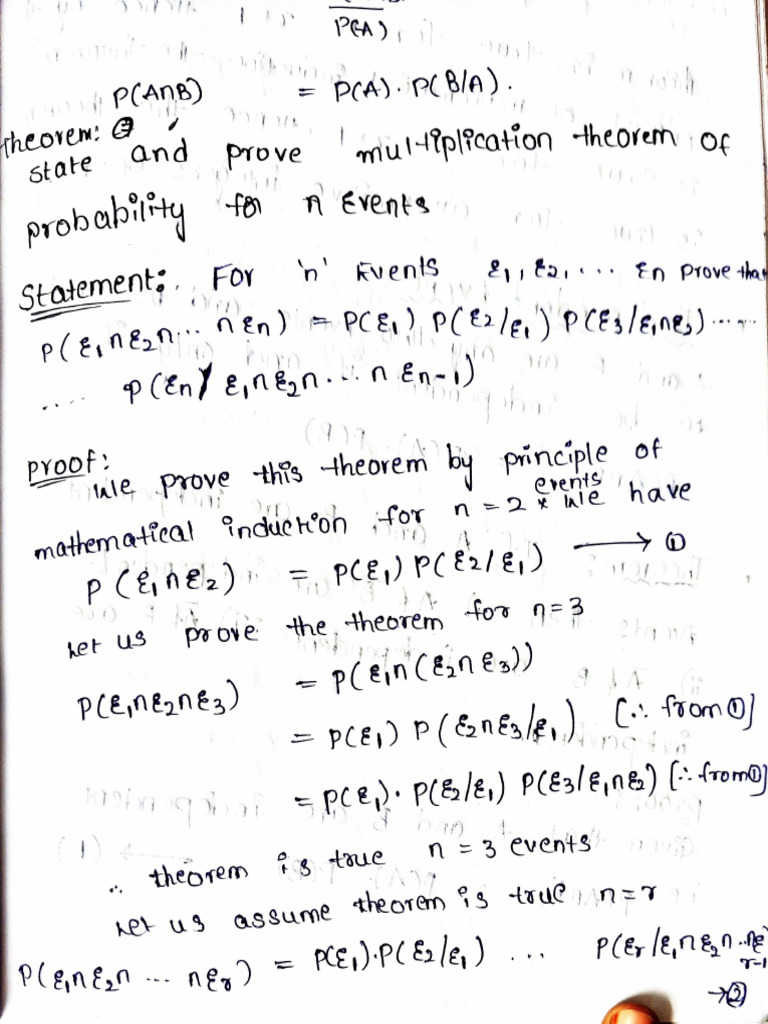 P(A)
P(A∩B) = P(A). P(B/A).
Theorem:
state and prove multiplication theorem of
probability for n Events
Statement: For 'n' Events ε1, ε2, ... εn prove that
P(ε1∩ε2∩... ∩εn) = P(ε1) P(ε2/ε1) P(ε3/ε1∩ε2) ......
.... P(εn/ε1∩ε2∩... ∩ εn-1)
Proof:
We prove this theorem by principle of
mathematical induction for n = 2 events we have
P(ε1∩ε2) = P(ε1) P(ε2/ε1) → ①
Let us prove the theorem for n=3
P(ε1∩ε2∩ε3) = P(ε1∩(ε2∩ε3))
= P(ε1) P(ε2∩ε3/ε1) [∵ from ①]
= P(ε1). P(ε2/ε1) P(ε3/ε1∩ε2) [∵ from ①]
∴ theorem is true n = 3 events
Let us assume theorem is true n=r
P(ε1∩ε2∩ ... ∩εr) = P(ε1).P(ε2/ε1) ... P(εr/ε1∩ε2∩..∩εr-1)
→②